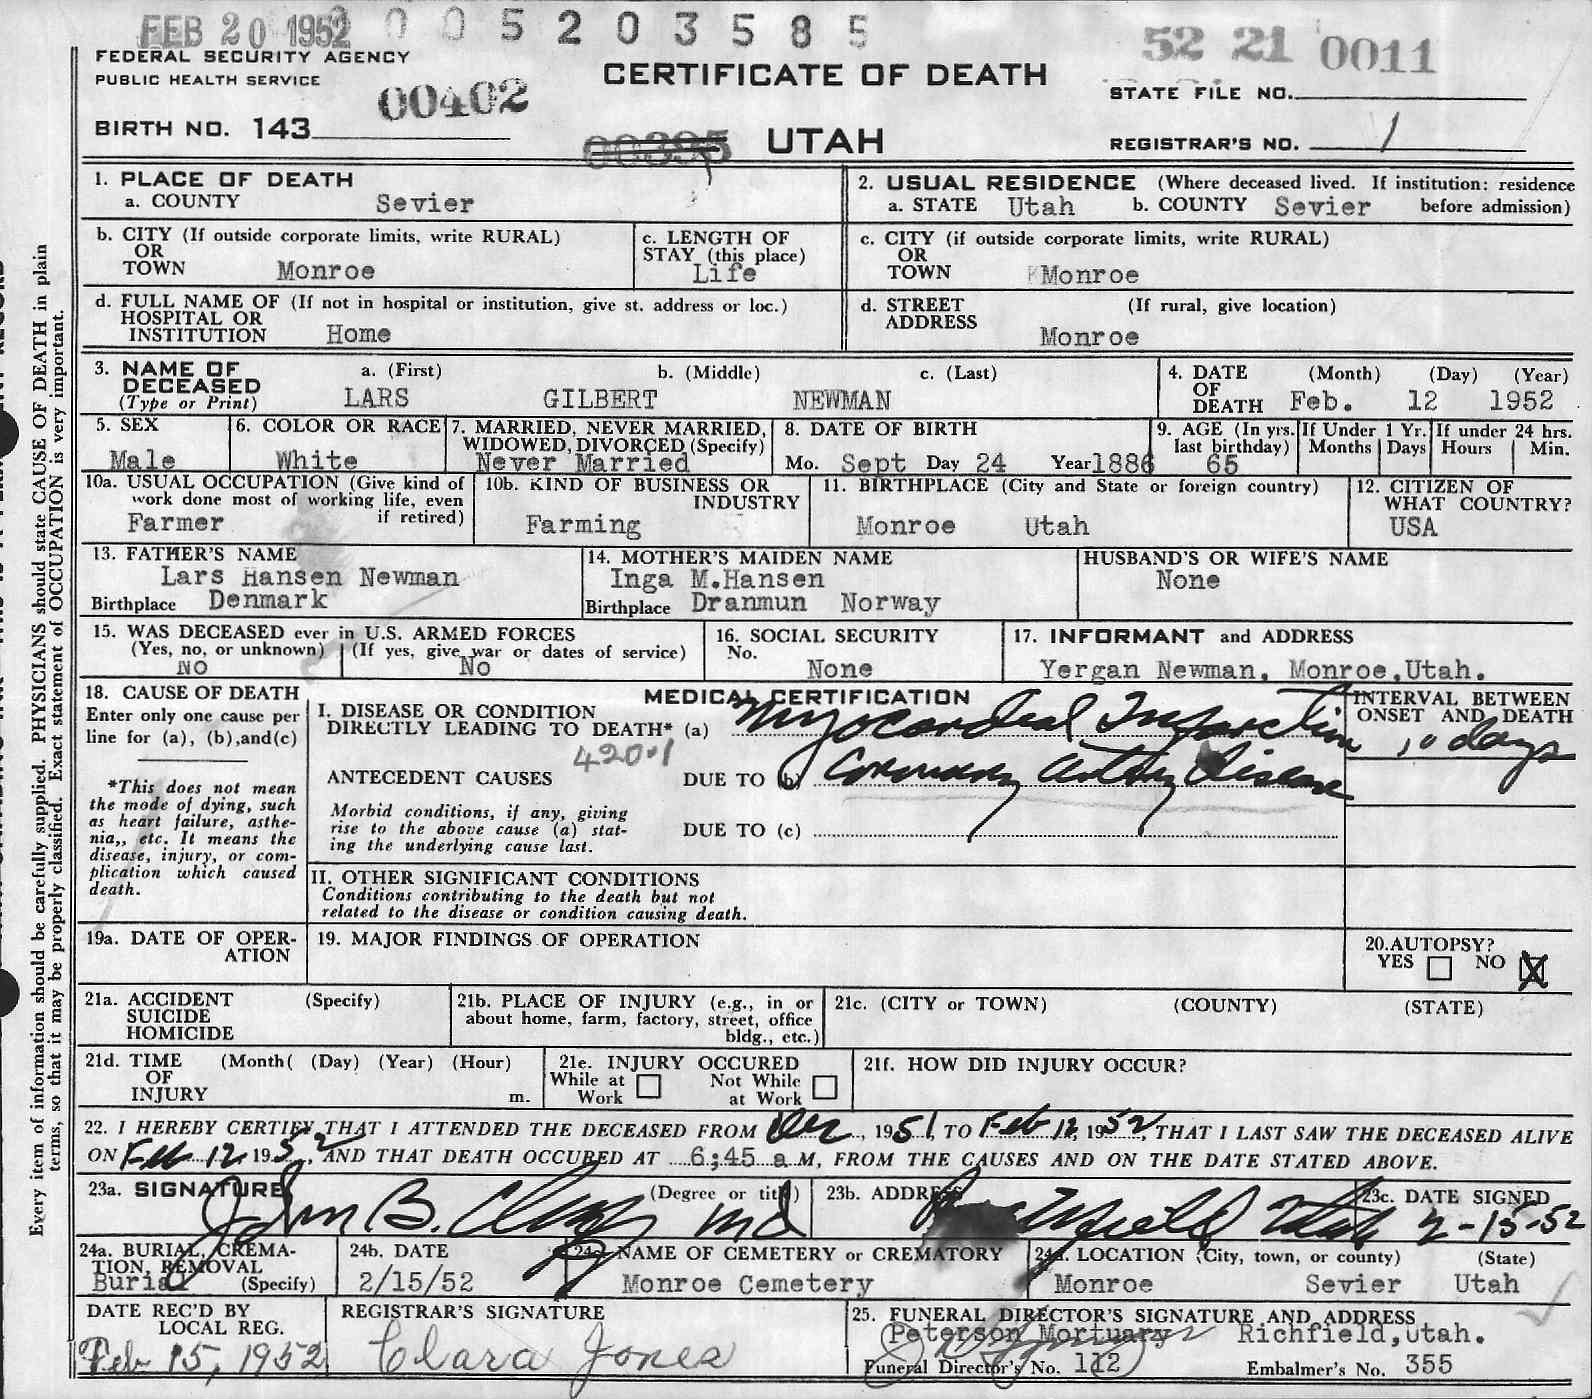 FEB 20 1952 0 0 5 2 0 3 5 8 5
52 21 0011
FEDERAL SECURITY AGENCY
PUBLIC HEALTH SERVICE
CERTIFICATE OF DEATH
STATE FILE NO.
00402
BIRTH NO. 143
00395
UTAH
REGISTRAR'S NO. 1
Every item of information should be carefully supplied. PHYSICIANS should state CAUSE OF DEATH in plain
terms, so that it may be properly classified. Exact statement of OCCUPATION is very important.
1. PLACE OF DEATH
a. COUNTY Sevier
2. USUAL RESIDENCE (Where deceased lived. If institution: residence
a. STATE Utah b. COUNTY Sevier before admission)
b. CITY (If outside corporate limits, write RURAL)
OR
TOWN Monroe
c. LENGTH OF
STAY (this place)
Life
c. CITY (if outside corporate limits, write RURAL)
OR
TOWN Monroe
d. FULL NAME OF (If not in hospital or institution, give st. address or loc.)
HOSPITAL OR
INSTITUTION Home
d. STREET (If rural, give location)
ADDRESS
Monroe
3. NAME OF a. (First) b. (Middle) c. (Last)
DECEASED
(Type or Print) LARS GILBERT NEWMAN
4. DATE (Month) (Day) (Year)
OF
DEATH Feb. 12 1952
5. SEX
Male
6. COLOR OR RACE
White
7. MARRIED, NEVER MARRIED,
WIDOWED, DIVORCED (Specify)
Never Married
8. DATE OF BIRTH
Mo. Sept Day 24 Year 1886
9. AGE (In yrs.
last birthday)
65
If Under 1 Yr.
Months Days
If under 24 hrs.
Hours Min.
10a. USUAL OCCUPATION (Give kind of
work done most of working life, even
if retired)
Farmer
10b. KIND OF BUSINESS OR
INDUSTRY
Farming
11. BIRTHPLACE (City and State or foreign country)
Monroe Utah
12. CITIZEN OF
WHAT COUNTRY?
USA
13. FATHER'S NAME
Lars Hansen Newman
Birthplace Denmark
14. MOTHER'S MAIDEN NAME
Inga M.Hansen
Birthplace Dranmun Norway
HUSBAND'S OR WIFE'S NAME
None
15. WAS DECEASED ever in U.S. ARMED FORCES
(Yes, no, or unknown) (If yes, give war or dates of service)
NO No
16. SOCIAL SECURITY
No.
None
17. INFORMANT and ADDRESS
Yergan Newman, Monroe,Utah.
18. CAUSE OF DEATH
Enter only one cause per
line for (a), (b),and(c)
*This does not mean
the mode of dying, such
as heart failure, asthe-
nia,, etc. It means the
disease, injury, or com-
plication which caused
death.
MEDICAL CERTIFICATION
I. DISEASE OR CONDITION
DIRECTLY LEADING TO DEATH* (a) Myocardial Infarction
420.1
ANTECEDENT CAUSES DUE TO (b) Coronary Artery Disease
Morbid conditions, if any, giving
rise to the above cause (a) stat-
ing the underlying cause last.
DUE TO (c)
INTERVAL BETWEEN
ONSET AND DEATH
10 days
II. OTHER SIGNIFICANT CONDITIONS
Conditions contributing to the death but not
related to the disease or condition causing death.
19a. DATE OF OPER-
ATION
19. MAJOR FINDINGS OF OPERATION
20.AUTOPSY?
YES NO X
21a. ACCIDENT (Specify)
SUICIDE
HOMICIDE
21b. PLACE OF INJURY (e.g., in or
about home, farm, factory, street, office
bldg., etc.)
21c. (CITY or TOWN) (COUNTY) (STATE)
21d. TIME (Month( (Day) (Year) (Hour)
OF
INJURY m.
21e. INJURY OCCURED
While at Not While
Work at Work
21f. HOW DID INJURY OCCUR?
22. I HEREBY CERTIFY THAT I ATTENDED THE DECEASED FROM Dec, 1951, TO Feb 12, 1952, THAT I LAST SAW THE DECEASED ALIVE
ON Feb 12 1952, AND THAT DEATH OCCURED AT 6;45 a M, FROM THE CAUSES AND ON THE DATE STATED ABOVE.
23a. SIGNATURE (Degree or title)
John B. MD
23b. ADDRESS
Richfield Utah
23c. DATE SIGNED
2-15-52
24a. BURIAL, CREMA-
TION, REMOVAL
Burial (Specify)
24b. DATE
2/15/52
24c. NAME OF CEMETERY or CREMATORY
Monroe Cemetery
24d. LOCATION (City, town, or county) (State)
Monroe Sevier Utah
DATE REC'D BY
LOCAL REG.
Feb 15, 1952
REGISTRAR'S SIGNATURE
Clara Jones
25. FUNERAL DIRECTOR'S SIGNATURE AND ADDRESS
Peterson Mortuary Richfield,Utah.
Funeral Director's No. 112 Embalmer's No. 355